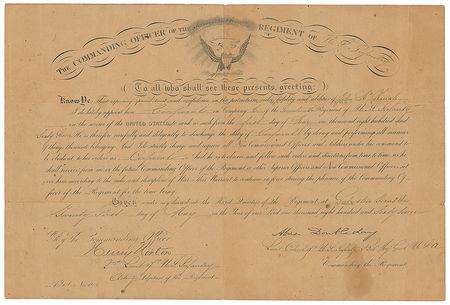 THE COMMANDING OFFICER OF THE REGIMENT OF U. S. Infantry
To all who shall see these presents, greeting:
Know Ye, That reposing special trust and confidence in the patriotism, valor, fidelity and abilities of
I do hereby appoint him Corporal in Company of the Regiment of U. S. Infantry
in the service of the UNITED STATES, to rank as such from the day of one thousand eight hundred and
Sixty Seven. He is therefore carefully and diligently to discharge the duty of Corporal by doing and performing all manner
of things thereunto belonging. And I do strictly charge and require all Non-Commissioned Officers and Soldiers under his command to
be obedient to his orders as Corporal. And he is to observe and follow such orders and directions from time to time, as
he shall receive from me, or the future Commanding Officer of the Regiment, or other Superior Officers and Non-Commissioned Officers set
over him, according to the rules and discipline of War. This Warrant to continue in force during the pleasure of the Commanding Of-
ficer of the Regiment for the time being.
Given under my hand at the Head Quarters of the Regiment at Galveston Texas this
Twenty First day of May in the Year of our Lord one thousand eight hundred and Sixty Seven
By the Commanding Officer
Abner Doubleday
Henry Norton
Lieut. Colonel U. S. Infantry U S A
Lieut. U. S. Infantry
Commanding the Regiment.
Adjutant of the Regiment.